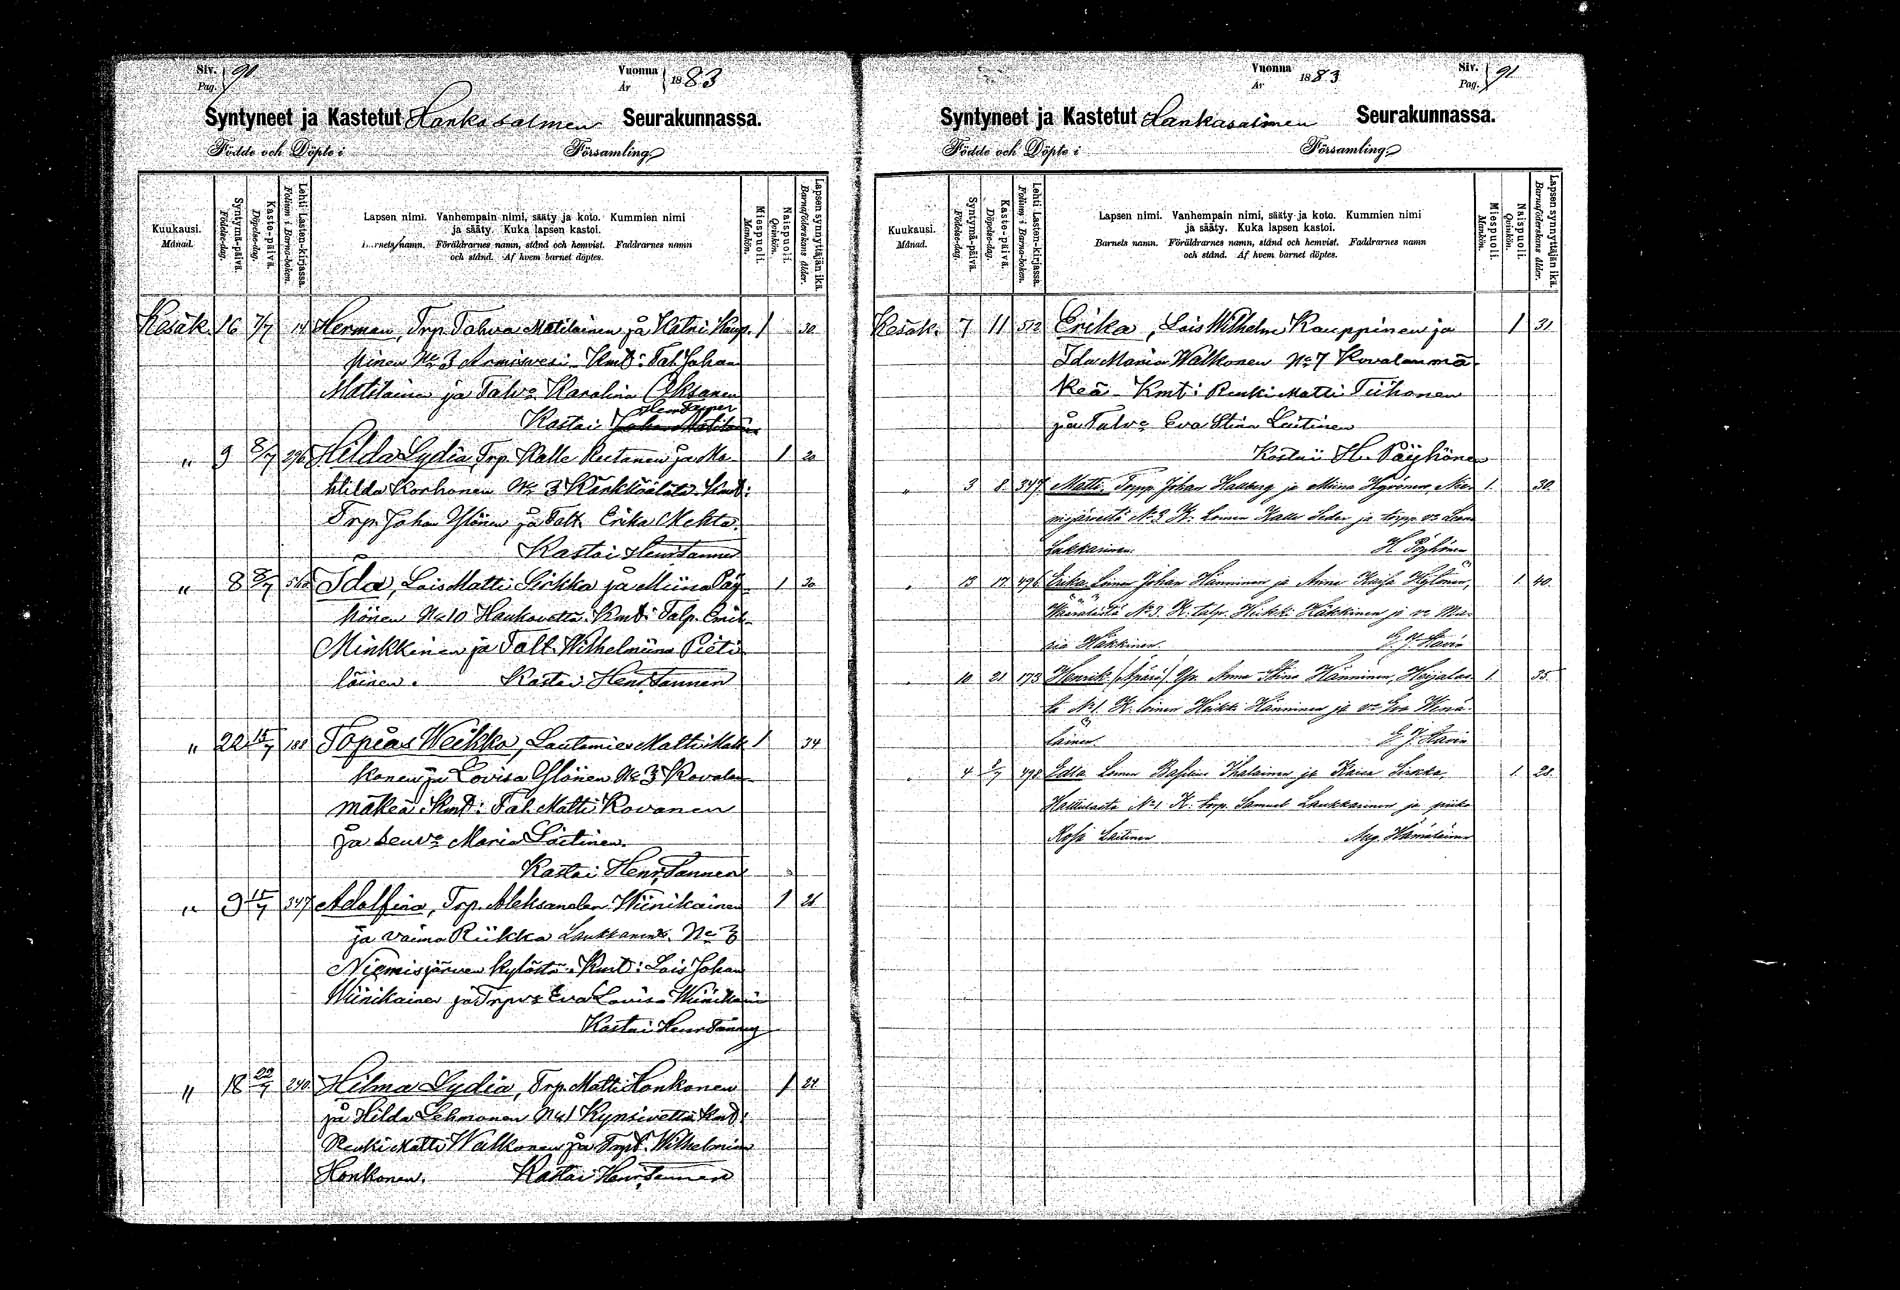 Siv. 90
Pag.
Vuonna 1883
År
Syntyneet ja Kastetut Hankasalmen Seurakunnassa.
Födde och Döpte i Församling
Kuukausi.
Månad.
Syntymä-päivä.
Födelse-dag.
Kaste-päivä.
Döpelse-dag.
Lehti Lasten-kirjassa.
Folium i Barna-boken.
Lapsen nimi. Vanhempain nimi, sääty ja koto. Kummien nimi
ja sääty. Kuka lapsen kastoi.
Barnets namn. Föräldrarnes namn, stånd och hemvist. Faddrarnes namn
och stånd. Af hvem barnet döptes.
Miespuoli.
Mankön.
Naispuoli.
Qvinkön.
Lapsen synnyttäjän ikä.
Barnaföderskans ålder.
Kesäk. 16 7/7 14 Herman, Trp. Tahvo Matilainen ja Katri Kaup- 1 30
pinen No 3 Armisvesi. Kmt: Tal. Johan
Matilainen ja Talv. Karolina Oksanen
Henr Tanner
Kastai Johan Matilainen
" 9 8/7 296 Hilda Lydia, Trp. Kalle Rutanen ja Ma- 1 20
thilda Korhonen No 3 Kärkkäälätä. Kmt:
Trp. Johan Ylönen ja Talt. Erika Mehto.
Kastai Henr Tanner
" 8 8/7 560 Ida, Lois Matti Sirkka ja Miina Pöy- 1 30
hönen No 10 Haukovetta. Kmt: Talp. Emil
Minkkinen ja Talt. Wilhelmiina Pieti-
läinen. Kastai Henr Tanner
" 22 15/7 188 Topias Weikko, Lautamies Matti Mat- 1 34
konen ja Lovisa Ylönen No 3 Kovalan-
mäkeä. Kmt: Tal. Matti Rovanen
ja seurv. Maria Laitinen.
Kastai Henr Tanner
" 9 15/7 347 Adolfina, Trp. Aleksander Wiinikainen 1 26
ja vaimo Riikka Laukkanen. No 3
Niemisjärven kylästä. Kmt: Lois Johan
Wiinikainen ja Trpv. Eva Lovisa
Kastai Henr Tanner
" 18 22/7 240. Hilma Lydia, Trp. Matti Honkonen 1 24
ja Hilda Lehmonen No 1 Kynsivettä Kmt:
Renki Matti Walkonen ja Trpt. Wilhelmina
Honkonen. Kastai Henr Tanner
Vuonna 1883
År
Siv. 91
Pag.
Syntyneet ja Kastetut Hankasalmen Seurakunnassa.
Födde och Döpte i Församling
Kuukausi.
Månad.
Syntymä-päivä.
Födelse-dag.
Kaste-päivä.
Döpelse-dag.
Lehti Lasten-kirjassa.
Folium i Barna-boken.
Lapsen nimi. Vanhempain nimi, sääty ja koto. Kummien nimi
ja sääty. Kuka lapsen kastoi.
Barnets namn. Föräldrarnes namn, stånd och hemvist. Faddrarnes namn
och stånd. Af hvem barnet döptes.
Miespuoli.
Mankön.
Naispuoli.
Qvinkön.
Lapsen synnyttäjän ikä.
Barnaföderskans ålder.
Kesäk. 7 11 512 Erika, Lois Wilhelm Kauppinen ja 1 31
Ida Maria Walkonen No 7 Kovalanmä-
keä. Kmt: Renki Matti Tiihonen
ja Talv. Eva Stina Laitinen
Kastai H. Pöyhönen
" 3 8. 347. Matti. Torpp. Johan Hallberg ja Miina Hyvönen, Nie- 1. 30.
misjärveltä No 3. K: Loinen Kalle Seder ja torpp. v:
Lakkarinen. H Pöyhönen
" 13 17. 496. Erika. Loinen Johan Hänninen ja Anna Kaisa Hytönen, 1. 40.
No 3. K. talp. Heikki Häkkinen ja v: Ma-
ria Häkkinen. E. J. Stavén
" 10 21 173 Henrik. (Äpärä) Yp. Anna Stina Hänninen, 1. 35.
ta No 1. K. loinen Heikki Hänninen ja v: Eva
läinen. E J. Stavén
" 4 2/7 498. Edla. Loinen Basilius Ihalainen ja Kaisa Sirkka, 1. 28.
No 1 K: torp. Samuel Laukkarinen ja piika
Rosa Laitinen Aug. Hämäläinen